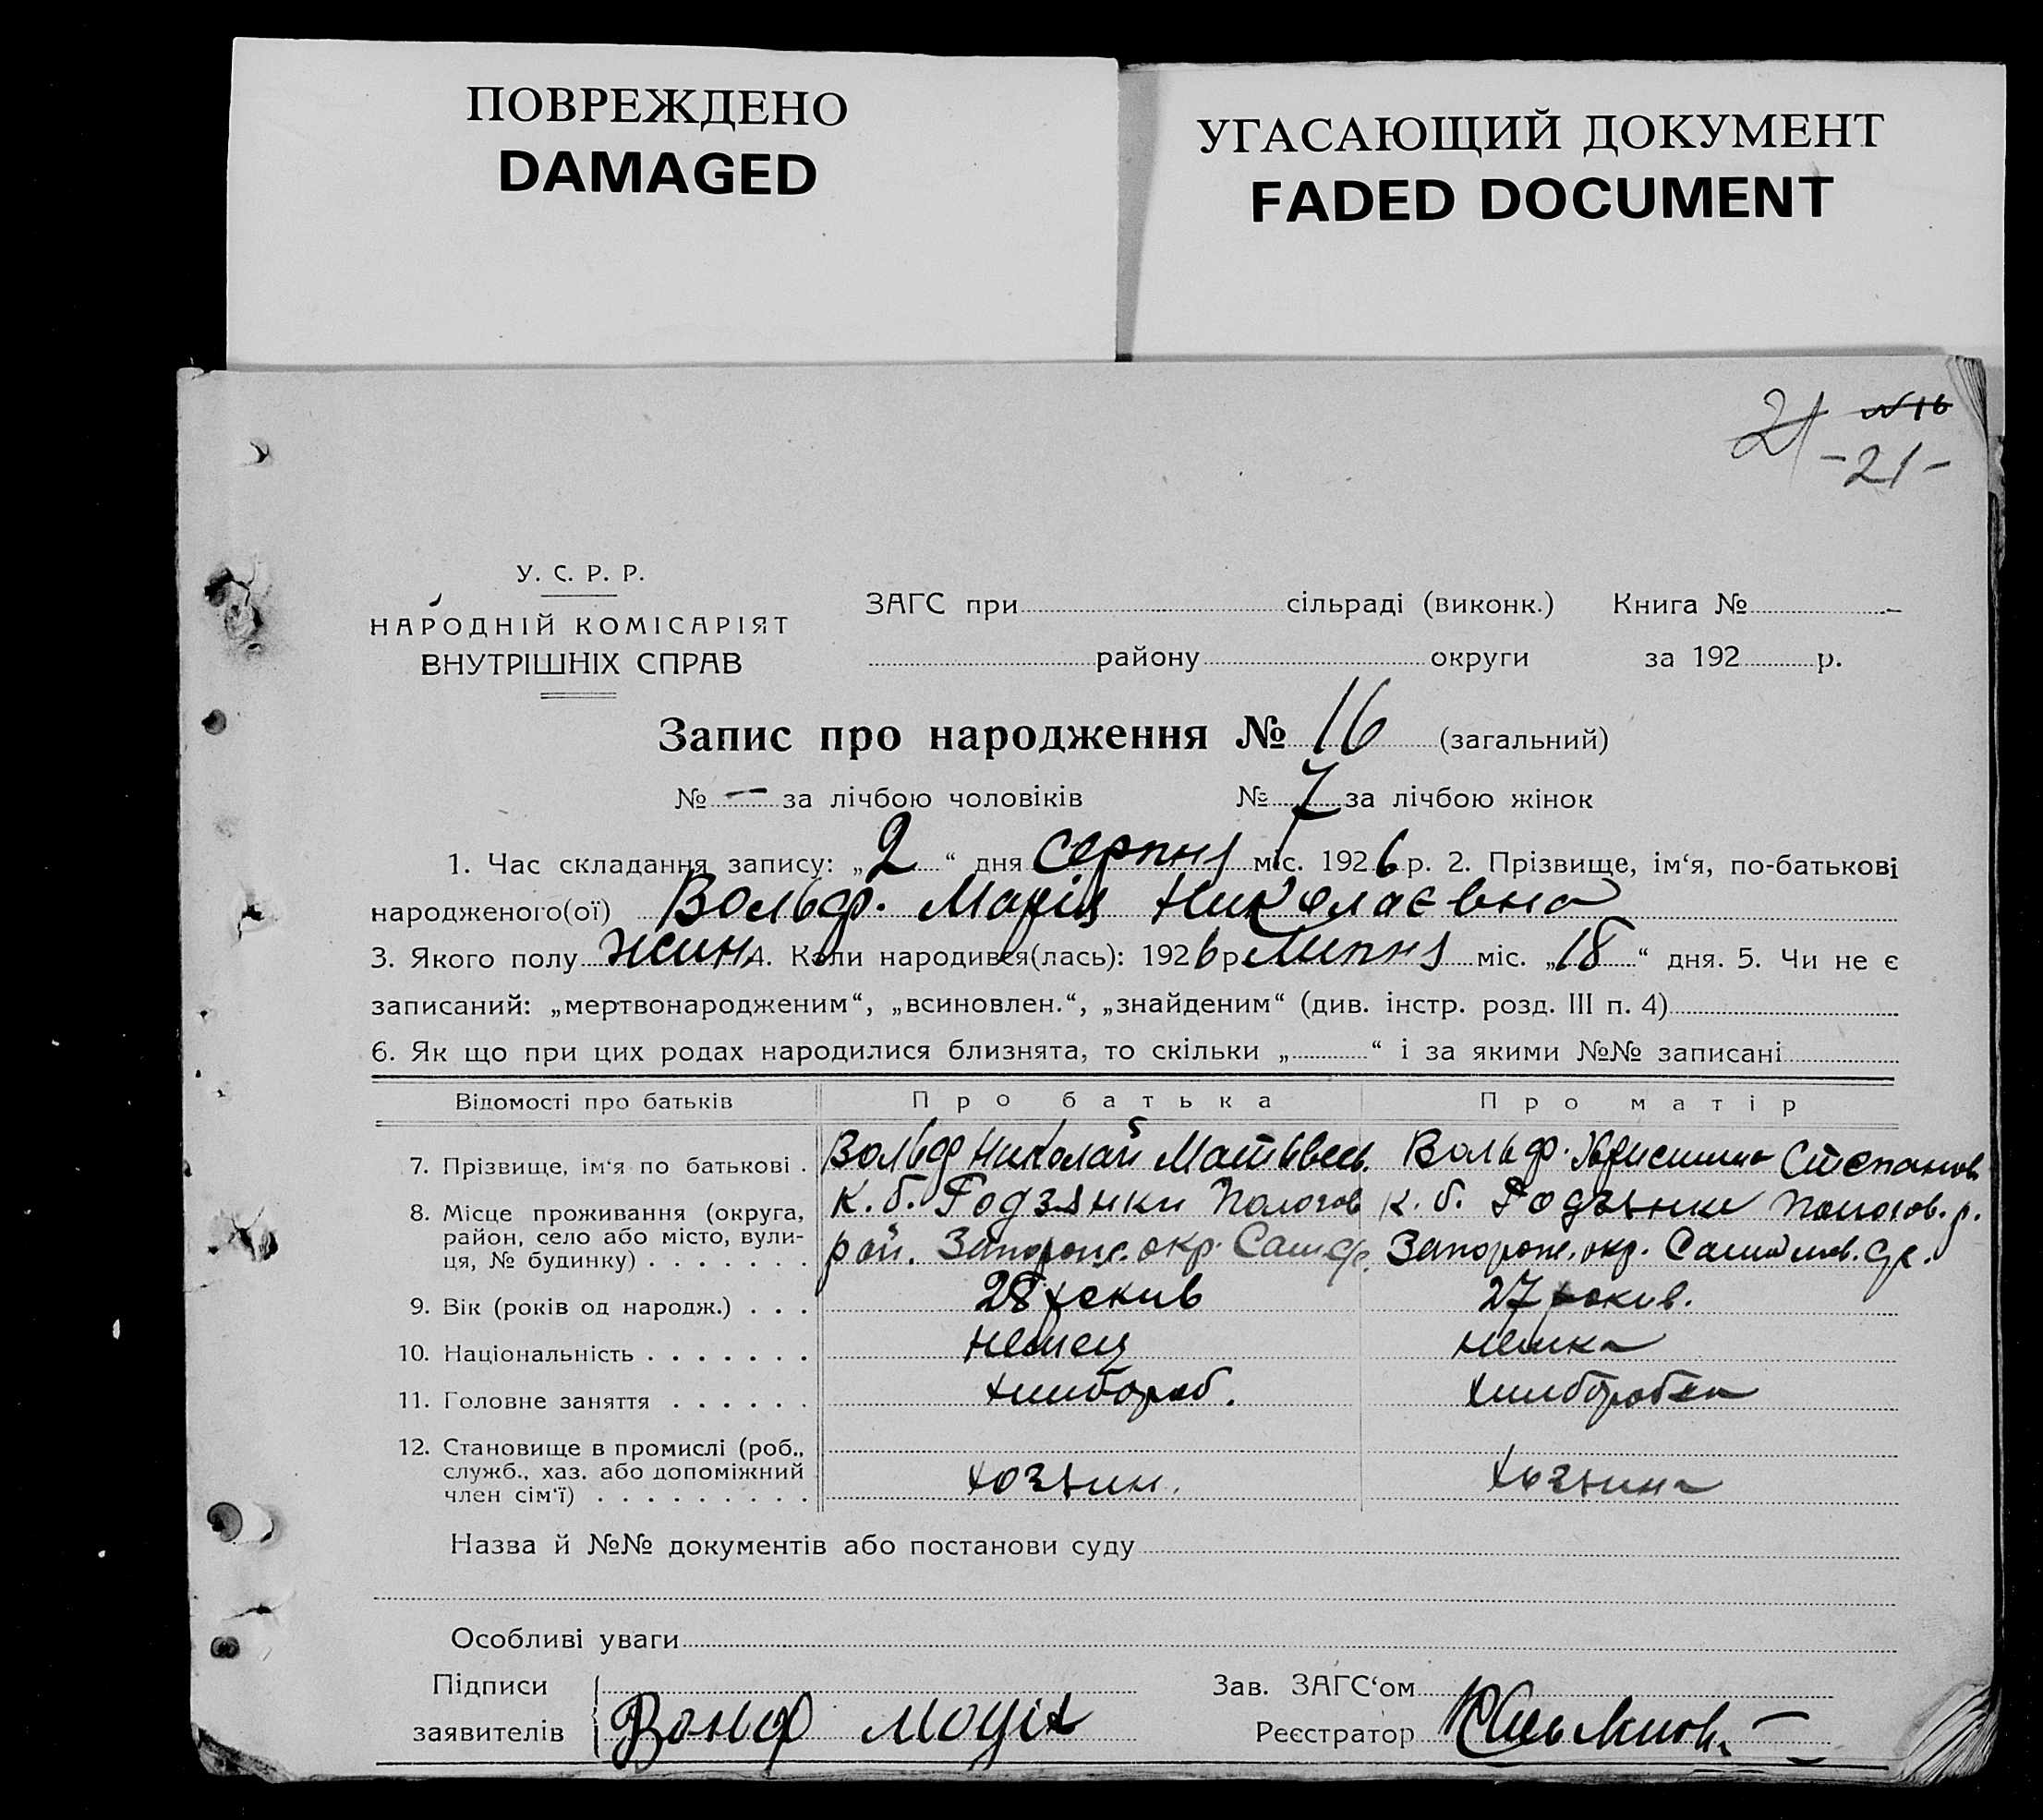 ПОВРЕЖДЕНО
DAMAGED
УГАСАЮЩИЙ ДОКУМЕНТ
FADED DOCUMENT
21 №16
-21-
У. С. Р. Р.
НАРОДНІЙ КОМІСАРІЯТ
ВНУТРІШНІХ СПРАВ
ЗАГС при сільраді (виконк.) Книга №
району округи за 192 р.
Запис про народження № 16 (загальний)
№ — за лічбою чоловіків № 7 за лічбою жінок
1. Час складання запису: „2“ дня серпня міс. 1926 р. 2. Прізвище, ім‘я, по-батькові
народженого(ої) Вольф. Марія Николаєвна
3. Якого полу жин. 4. Коли народився(лась): 1926 р Липня міс. „18“ дня. 5. Чи не є
записаний: „мертвонародженим“, „всиновлен.“, „знайденим“ (див. інстр. розд. III п. 4)
6. Як що при цих родах народилися близнята, то скільки „ “ і за якими №№ записані
Відомості про батьків Про батька Про матір
7. Прізвище, ім‘я по батькові . Вольф Николай Матвеев. Вольф. Христина Степанов
8. Місце проживання (округа, к. б. Годзянки Пологов к. б. Годзянки Пологов. р.
район, село або місто, вули-
ця, № будинку) . . . . . . . рай. Запорож. окр. Запорож. окр.
9. Вік (років од народж.) . . . 28 рокив 27 рокив.
10. Національність . . . . . . . немец немка
11. Головне заняття . . . . . . хлибороб. хлиборобка
12. Становище в промислі (роб.,
служб., хаз. або допоміжний
член сім‘ї) . . . . . . . . . хозяин. хозяина
Назва й №№ документів або постанови суду
Особливі уваги
Підписи Зав. ЗАГС‘ом
заявителів Вольф Реєстратор